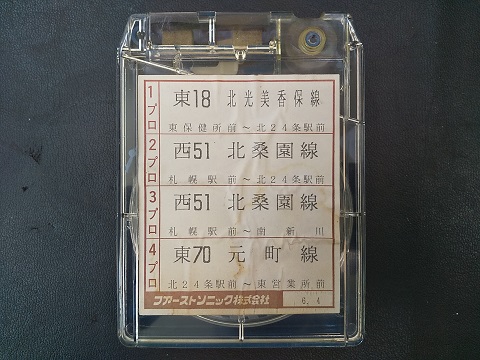 1プロ
東18 北光美香保線
東保健所前～北24条駅前
2プロ
西51 北桑園線
札幌駅前～北24条駅前
3プロ
西51 北桑園線
札幌駅前～南新川
4プロ
東70 元町線
北24条駅前～東営業所前
ファーストソニック株式会社
6.4